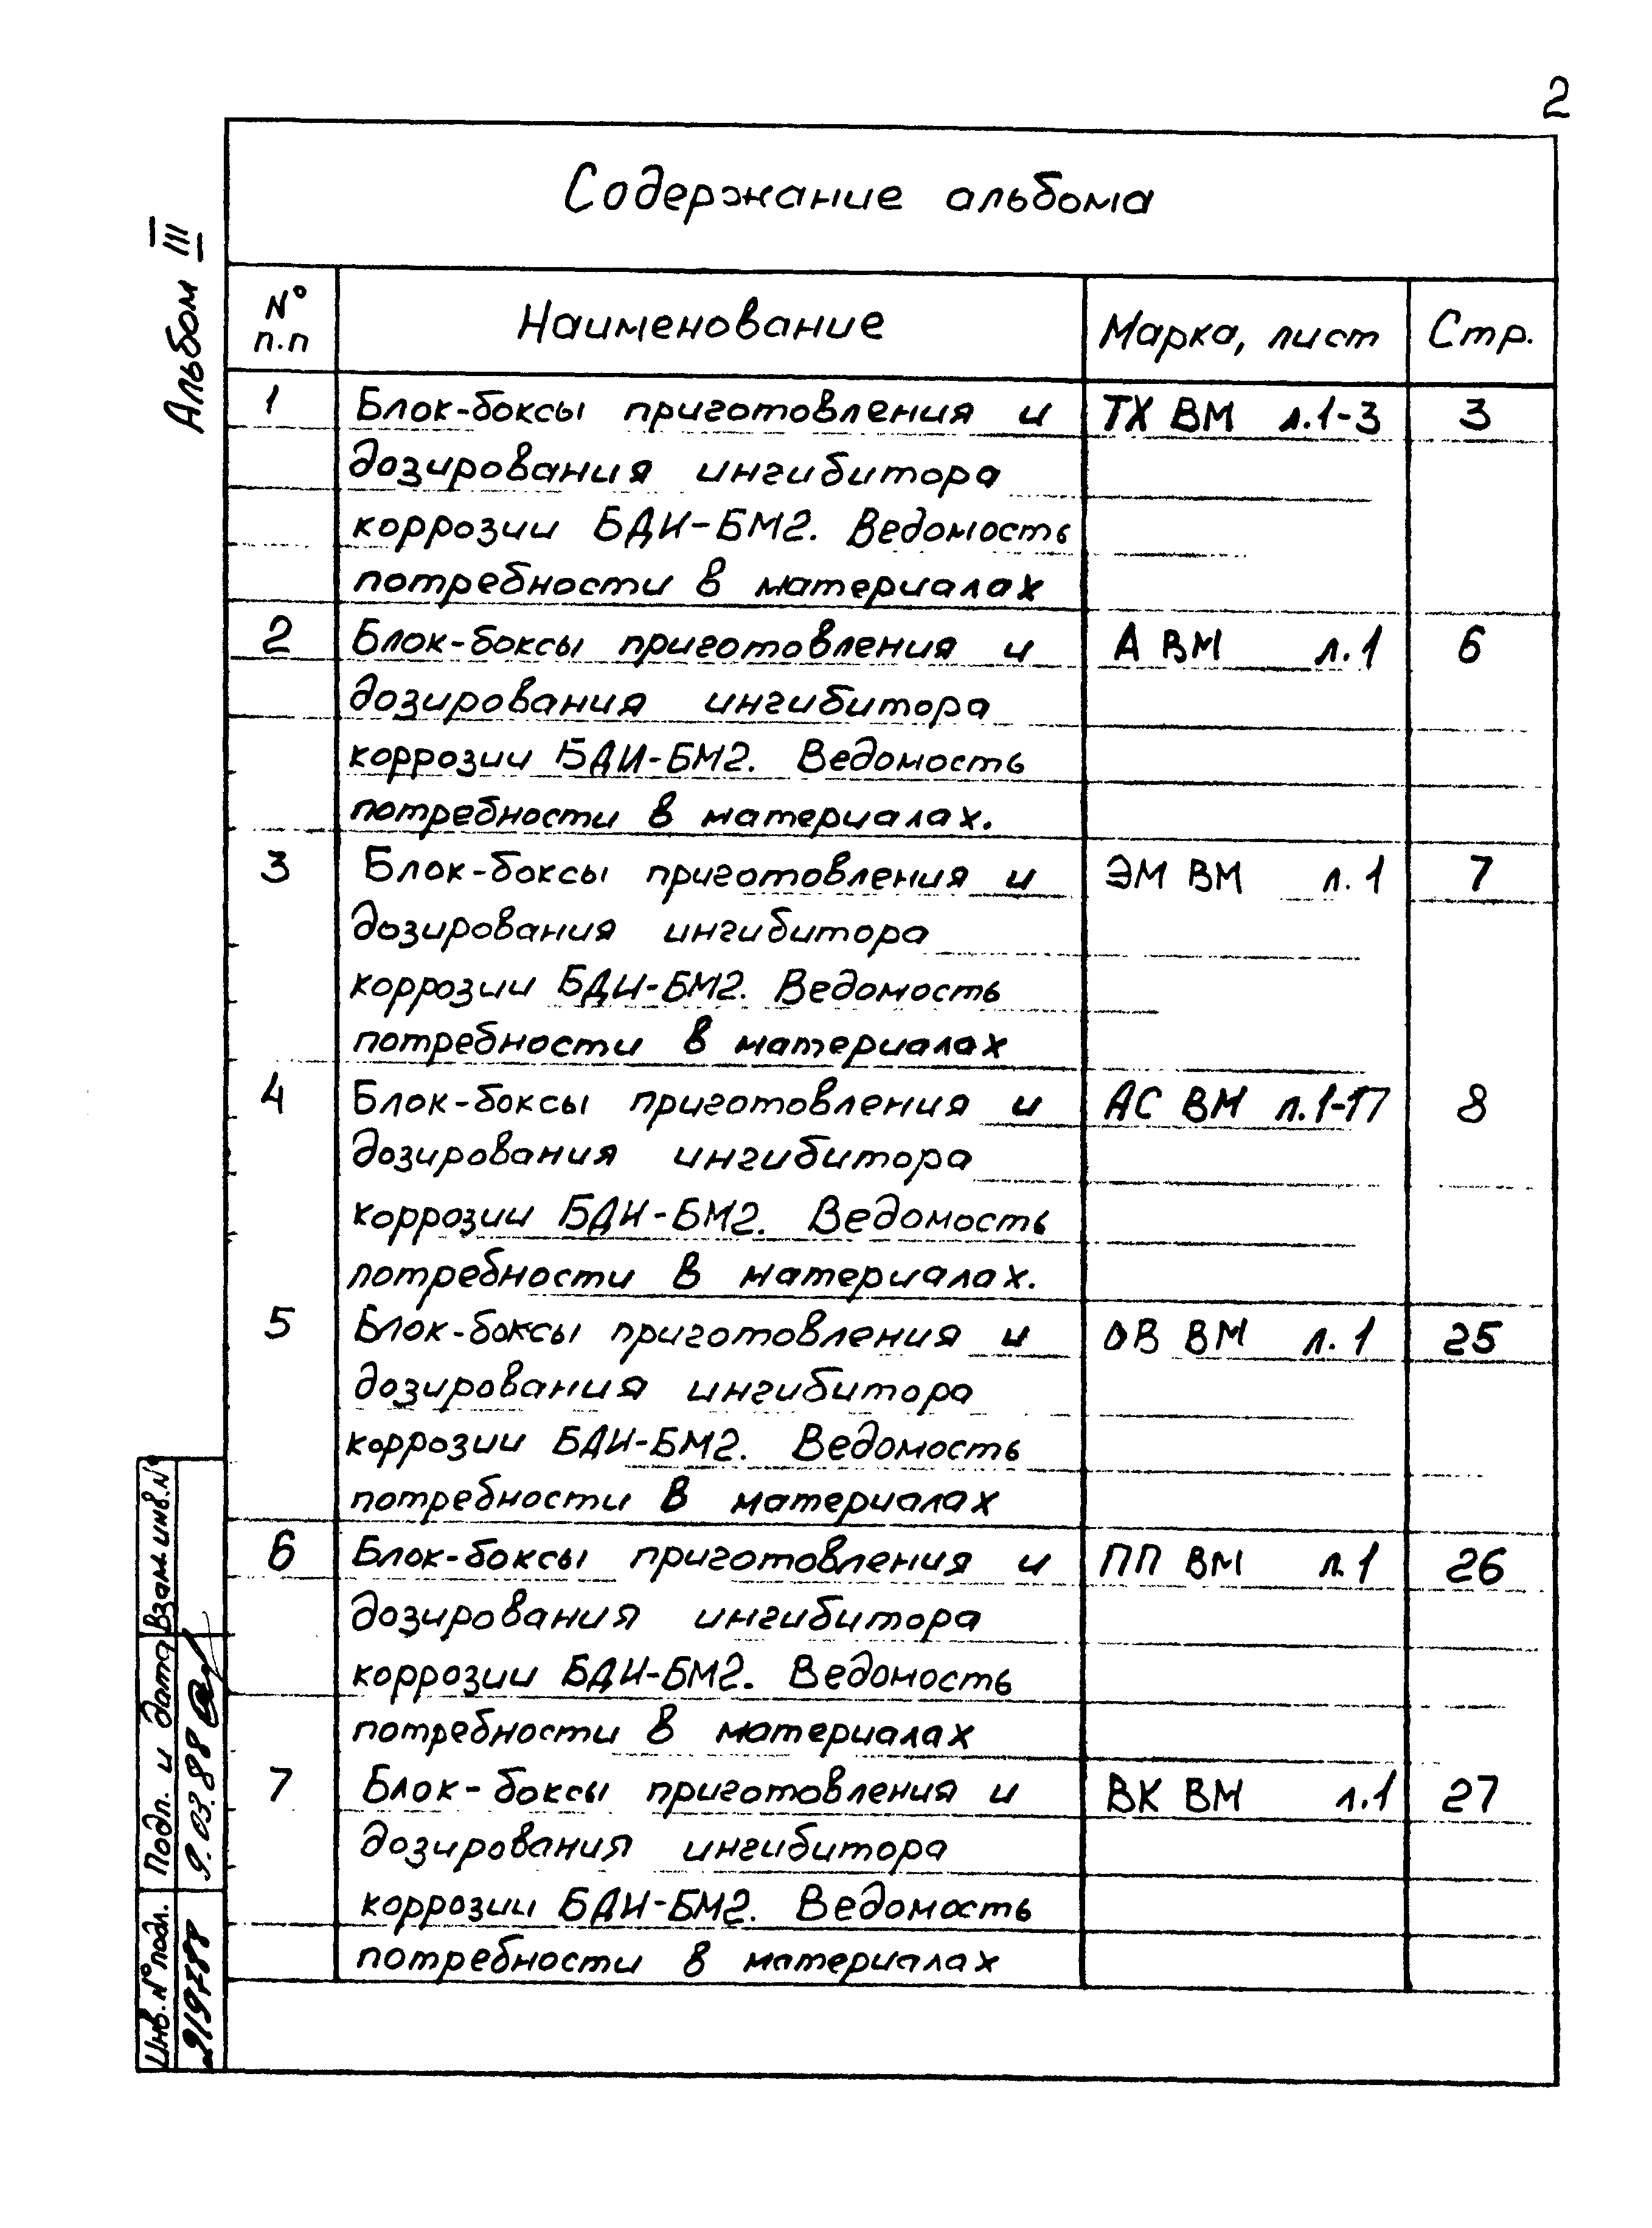 2
Альбом III
Содержание альбома
№ п.п Наименование Марка, лист Стр.
1 Блок-боксы приготовления и ТХ ВМ л.1-3 3
дозирования ингибитора
коррозии БДИ-БМ2. Ведомость
потребности в материалах
2 Блок-боксы приготовления и А ВМ л.1 6
дозирования ингибитора
коррозии БДИ-БМ2. Ведомость
потребности в материалах.
3 Блок-боксы приготовления и ЭМ ВМ л.1 7
дозирования ингибитора
коррозии БДИ-БМ2. Ведомость
потребности в материалах
4 Блок-боксы приготовления и АС ВМ л.1-17 8
дозирования ингибитора
коррозии БДИ-БМ2. Ведомость
потребности в материалах.
5 Блок-боксы приготовления и ОВ ВМ л.1 25
дозирования ингибитора
коррозии БДИ-БМ2. Ведомость
потребности в материалах
6 Блок-боксы приготовления и ПП ВМ л.1 26
дозирования ингибитора
коррозии БДИ-БМ2. Ведомость
потребности в материалах
7 Блок-боксы приготовления и ВК ВМ л.1 27
дозирования ингибитора
коррозии БДИ-БМ2. Ведомость
потребности в материалах
Взам. инв. №
Подп. и дата
9.03.88
Инв. № подл.